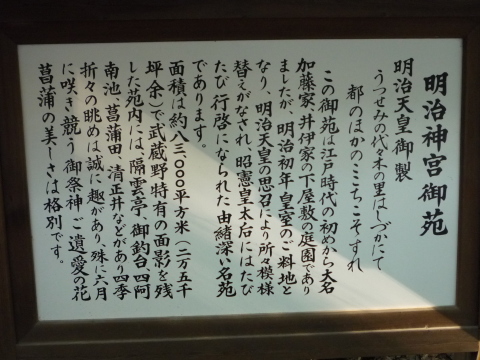 明治神宮御苑
明治天皇御製
うつせみの代々木の里はしづかにて
都のほかのこゝちこそすれ
この御苑は江戸時代の初めから大名
加藤家、井伊家の下屋敷の庭園であり
ましたが、明治初年皇室のご料地と
なり、明治天皇の思召により所々模様
替えがなされ、昭憲皇太后にはたび
たび行啓になられた由緒深い名苑
であります。
面積は約八三、〇〇〇平方米(二万五千
坪余)で武蔵野特有の面影を残
した苑内には、隔雲亭、御釣台四阿
南池、菖蒲田、清正井などがあり四季
折々の眺めは誠に趣があり、殊に六月
に咲き競う御祭神ご遺愛の花
菖蒲の美しさは格別です。